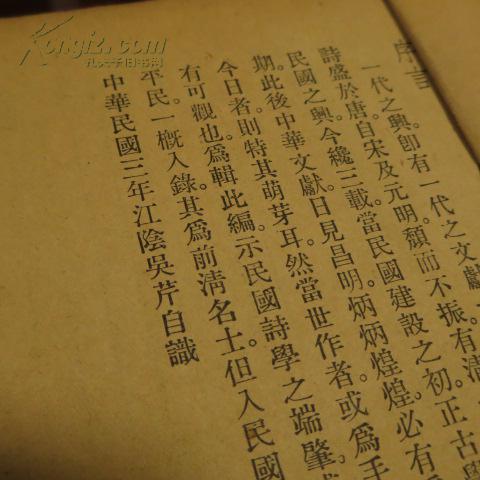 Kongfz.com
孔夫子旧书网
序言
一代之興。卽有一代之文獻。
詩盛於唐。自宋及元明。頹而不振。有清
民國之興。今纔三載。當民國建設之初。正古
期。此後中華文獻。日見昌明。炳炳煌煌。必有
今日者。則特其萌芽耳。然當世作者。或爲手
有可觀也。爲輯此編。示民國詩學之端肇。
平民。一槪入錄。其爲前淸名士。但入民國
中華民國三年江陰吳芹自識